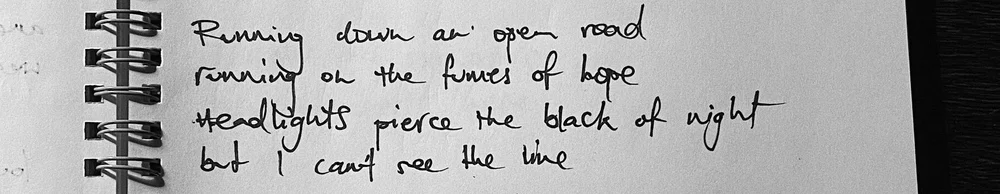 Running down an open road
running on the fumes of hope
Headlights pierce the black of night
but I can't see the line